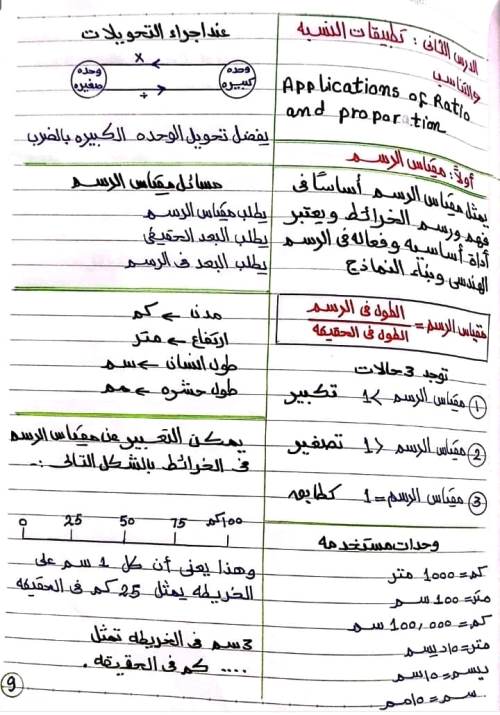 الدرس الثانى : تطبيقات النسبه
والتناسب
Applications of Ratio
and proparation
أولاً: مقياس الرسم
يمثل مقياس الرسم أساساً فى
فهم ورسم الخرائط ويعتبر
أداة أساسيه وفعاله فى الرسم
الهندسى وبناء النماذج
مقياس الرسم = الطول فى الرسم
الطول فى الحقيقه
توجد 3 حالات
① مقياس الرسم > 1 تكبير
② مقياس الرسم < 1 تصغير
③ مقياس الرسم = 1 تطابق
وحدات مستخدمه
كم = 1000 متر
متر = 100 سم
كم = 100,000 سم
متر = 10 ديسم
ديسم = 10 سم
سم = 10 مم
عند اجراء التحويلات
×
وحده كبيره
وحده صغيره
÷
يفضل تحويل الوحده الكبيره بالضرب
مسائل مقياس الرسم
يطلب مقياس الرسم
يطلب البعد الحقيقى
يطلب البعد فى الرسم
مدن ← كم
ارتفاع ← متر
طول انسان ← سم
طول حشره ← مم
يمكن التعبير عن مقياس الرسم
فى الخرائط بالشكل التالى :.
0 25 50 75 100 كم
وهذا يعنى أن كل 1 سم على
الخريطه يمثل 25 كم فى الحقيقه
3 سم فى الخريطه تمثل
.... كم فى الحقيقه .
9